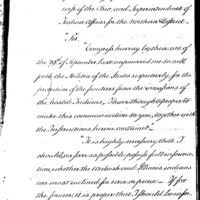 of the Ohio, and Superintendant of
Indian Affairs for the Northern District.
"Sir,
Congress having by their act of
the 29th of September last empowered me to call
forth the Militia of the States respectively, for the
protection of the frontiers from the incursions of
the hostile Indians, I have thought proper to
make this communication to you, together with
the Instructions herein contained.
"It is highly necessary that I
should, as soon as possible, possess full information,
whether the Wabash and Illinois Indians
are most inclined for war or peace — If for
the former, it is proper that I should be informed